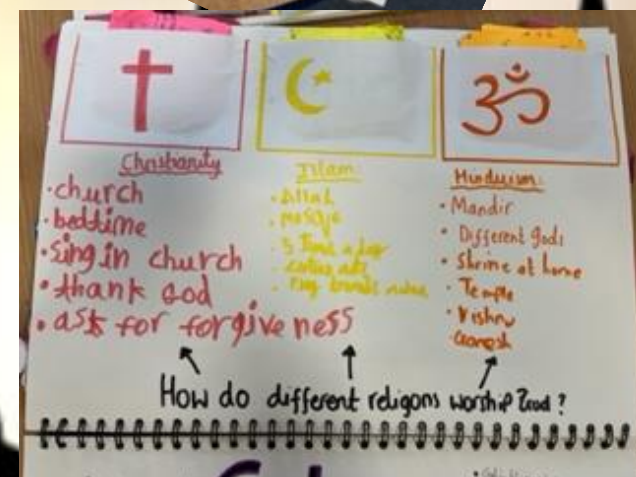 Christianity
• church
• bedtime
• sing in church
• thank God
• ask for forgiveness
Islam:
• Allah
• 5 times a day
Hinduism:
• Mandir
• Different gods
• Shrine at home
• Temple
• Vishnu
Ganesh
How do different religons worship God?